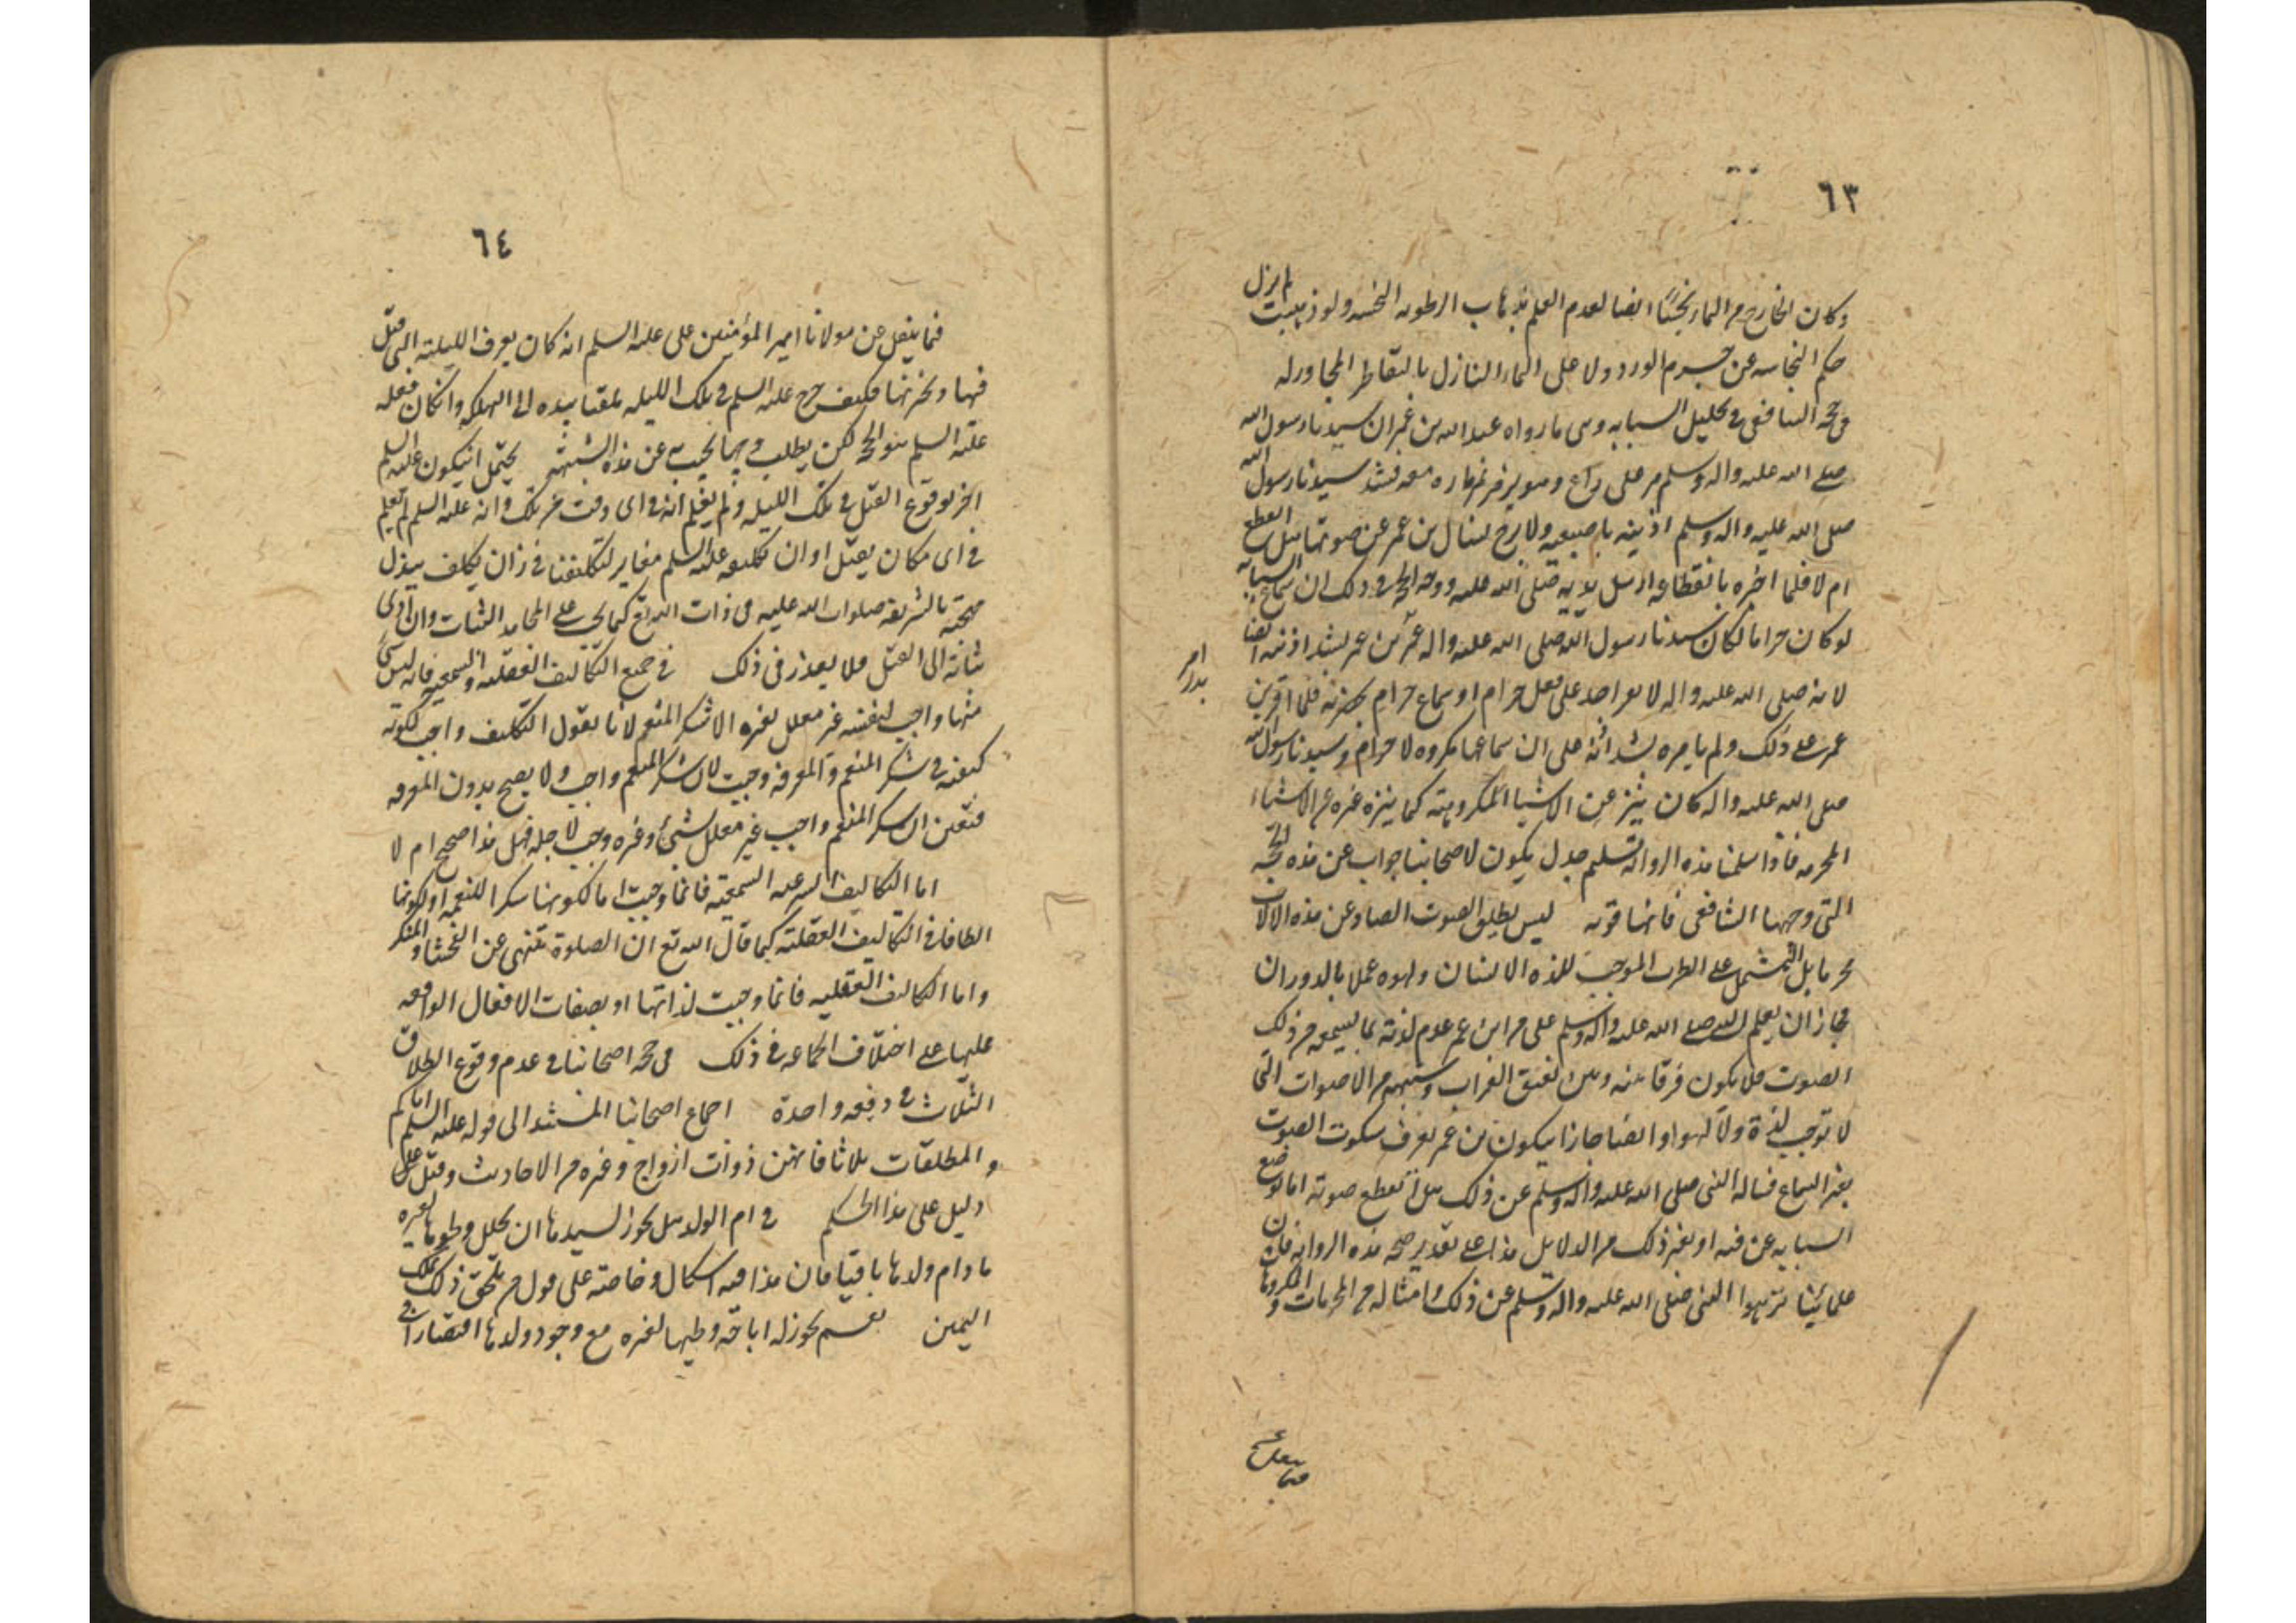 ٦٣
وكان الخارج من الماء نجسا ايضا لعدم العلم بذهاب الرطوبه النجسه ولو ذهبت لم يزل
حكم النجاسه عن جرم الورد ولا على الماء النازل بالتقاطر المجاور له
فى حجه الشافعى فى تحليل السبابه وهى ما رواه عبد الله بن عمر ان سيدنا رسول الله
صلى الله عليه واله وسلم مر على راع وهو يزمر بزماره معه فشد سيدنا رسول الله
صلى الله عليه واله وسلم اذنيه باصبعيه ولا برح يسال بن عمر عن صوتها هل انقطع
ام لا فلما اخبره بانقطاعه ارسل يديه صلى الله عليه ووجه الحجه فى ذلك ان سماع السبابه
لو كان حراما لكان سيدنا رسول الله صلى الله عليه واله امر بن عمر بشد اذنيه ايضا
لانه صلى الله عليه واله لا يقر احد على فعل حرام او سماع حرام بحضرته فلما اقر بن
عمر على ذلك ولم يامره بشد اذنه على ان سماعها مكروه لا حرام وسيدنا رسول الله
صلى الله عليه واله كان يتنزه عن الاشياء المكروهة كما يتنزه غيره عن الاشياء
المحرمه فاذا سلمنا هذه الروايه تسليم جدل يكون لاصحابنا جواب عن هذه الحجه
التى وجهها الشافعى فانها قويه ليس بطلق الصوت الصادر عن هذه الالات
محرما بل المشتمل على الطرب الموجب للذه الانسان ولهوه عملا بالدوران
فجاز ان يعلم النبى صلى الله عليه واله وسلم على من ابن عمر عدم لذته بما يسمعه من ذلك
الصوت فلا يكون فرقا بينه وبين نعيق الغراب وشبهه من الاصوات التى
لا توجب لذة ولا لهوا وايضا جاز ان يكون بن عمر يعرف سكوت الصوت
بغير السماع فساله النبى صلى الله عليه واله وسلم عن ذلك هل انقطع صوته اما بوضع
السبابه عن فيه او بغير ذلك من الدلايل هذا على تقدير صحه هذه الروايه فان
علمائنا نزهوا النبى صلى الله عليه واله وسلم عن ذلك وامثاله من المحرمات والمكروهات
٦٤
فيما ينقل عن مولانا امير المؤمنين على عليه السلم انه كان يعرف الليلة التى قتل
فيها ويخبر بها فكيف خرج عليه السلم فى تلك الليله ملقيا بيده الى التهلكه وان كان فعله
عليه السلم هو الحجه لكن يطلب وجها يجيب به عن هذه الشبهه يحتمل ان يكون عليه السلم
اخبر بوقوع القتل فى تلك الليله ولم يعلم انه فى اى وقت من تلك وانه عليه السلم لم يعلم
فى اى مكان يقتل او ان تكليفه عليه السلم مغاير لتكليفنا فجاز ان يكلف ببذل
مهجته الشريفه صلوات الله عليه فى ذات الله تع كما يجب على المجاهد الثبات وان ادى
ثباته الى القتل فلا يعذر فى ذلك فى جميع التكاليف العقليه والسمعيه فانه ليس شى
منها واجب لنفسه غير معلل بغيره الا شكر المنعم لانا نقول التكليف واجب لكونه
كيفيه فى شكر المنعم والمعرفه وجبت لان شكر المنعم واجب ولا يصح بدون المعرفه
فتعين ان شكر المنعم واجب غير معلل بشئ وغيره وجب لاجله فهل هذا صحيح ام لا
اما التكاليف الشرعيه السمعيه فانما وجبت اما لكونها شكرا للنعمه او لكونها
الطافا فى التكاليف العقلية كما قال الله تع ان الصلوة تنهى عن الفحشا والمنكر
واما التكاليف العقليه فانما وجبت لذاتها او بصفات الافعال الواقعه
عليها على اختلاف الجماعه فى ذلك فى حجه اصحابنا فى عدم وقوع الطلاق
الثلاث فى دفعه واحدة اجماع اصحابنا المستند الى قوله عليه السلم اياكم
والمطلقات ثلاثا فانهن ذوات ازواج وغيره من الاحاديث وقيل على
دليل على هذا الحكم فى ام الولد هل يجوز لسيدها ان يحلل وطيها لغيره
ما دام ولدها باقيا فان هذا فيه اشكال وخاصة على قول من يلحق ذلك بملك
اليمين نعم يجوز له اباحة وطيها لغيره مع وجود ولدها اقتصارا فى